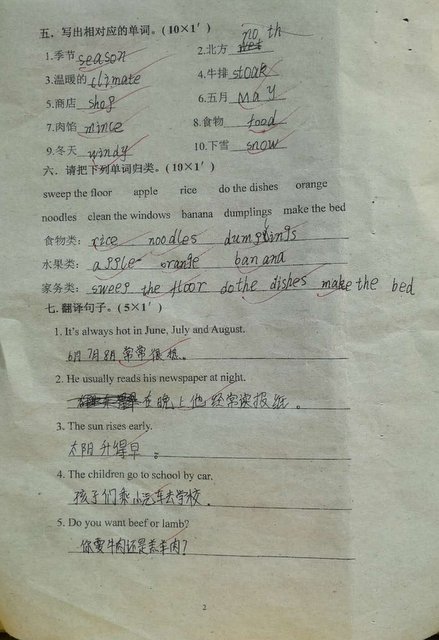 五，写出相对应的单词。(10×1′)
1.季节 season 2.北方 no th
3.温暖的 climate 4.牛排 stoak
5.商店 shop 6.五月 May
7.肉馅 mince 8.食物 food
9.冬天 windy 10.下雪 snow
六、请把下列单词归类。(10×1′)
sweep the floor apple rice do the dishes orange
noodles clean the windows banana dumplings make the bed
食物类: rice noodles dumplings
水果类: apple orange banana
家务类: sweep the floor do the dishes make the bed
七.翻译句子。(5×1′)
1. It's always hot in June, July and August.
6月7月8月常常很热。
2. He usually reads his newspaper at night.
在晚上他经常读报纸。
3. The sun rises early.
太阳升得早。
4. The children go to school by car.
孩子们乘小汽车去学校.
5. Do you want beef or lamb?
你要牛肉还是羊肉?
2